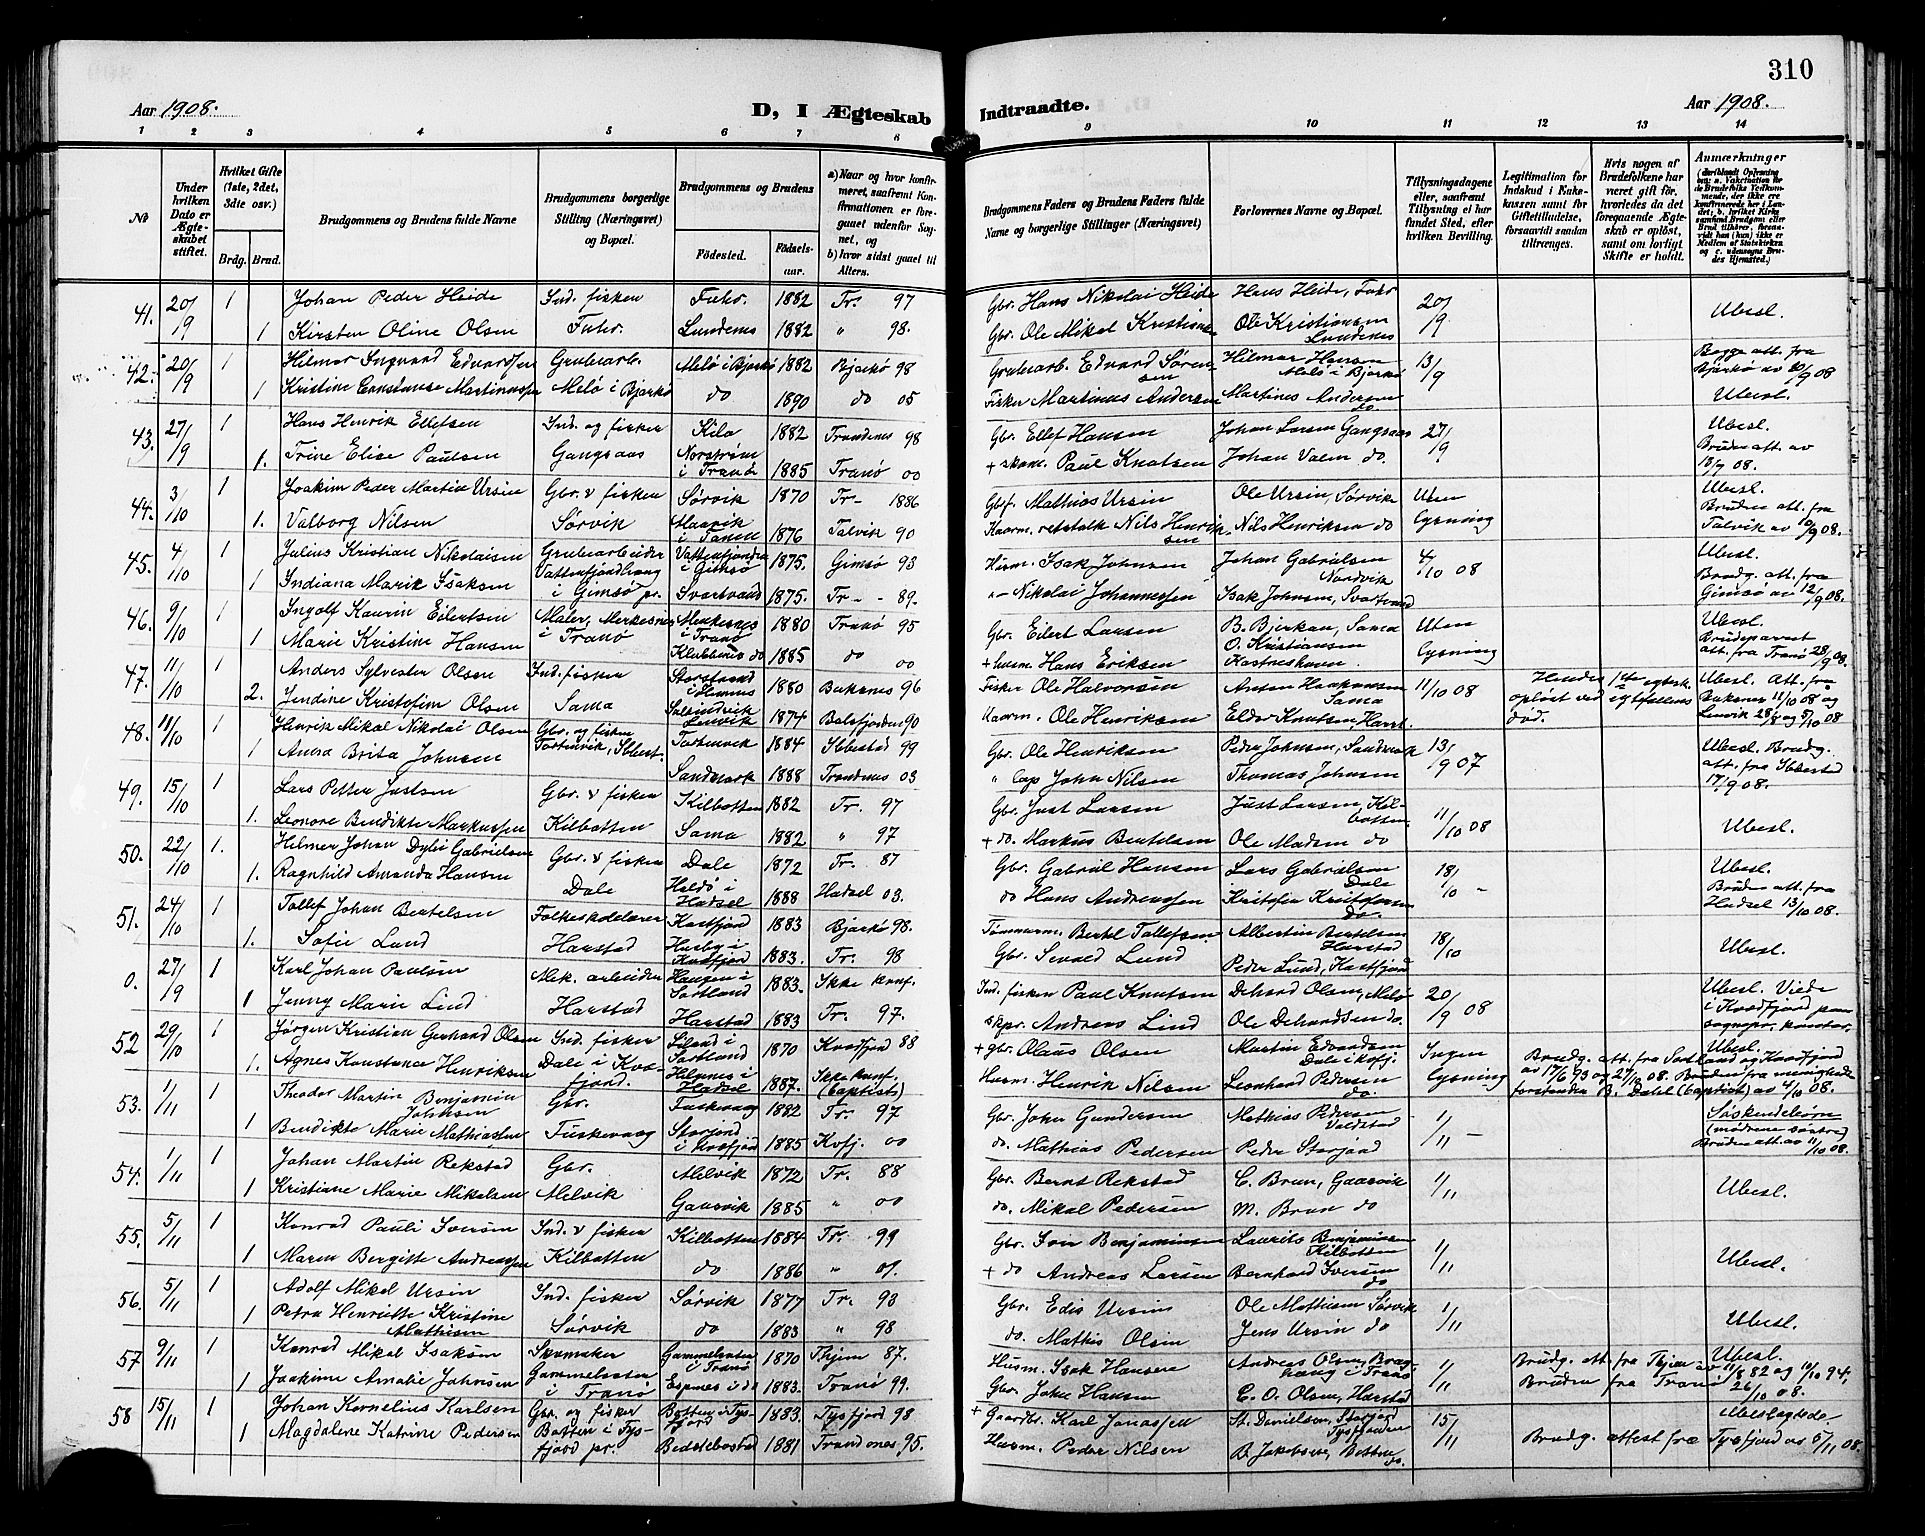 310
Aar 1908.
D, I Ægteskab Indtraadte.
Aar 1908.
1 2 3 4 5 6 7 8 9 10 11 12 13 14
No
Under hvilken Dato er Ægteskabet stiftet.
Hvilket Gifte (1ste, 2det, 3dte osv.)
Brdg. Brud.
Brudgommens og Brudens fulde Navne
Brudgommens borgerlige Stilling (Næringsvei) og Bopæl.
Brudgommens og Brudens
Fødested. Fødselsaar.
a) Naar og hvor konfirmeret, saafremt Konfirmationen er foregaaet udenfor Sognet, og b) hvor sidst gaaet til Alters.
Brudgommens Faders og Brudens Faders fulde Navne og borgerlige Stillinger (Næringsvei)
Forlovernes Navne og Bopæl.
Tillysningsdagene eller, saafremt Tillysning ei har fundet Sted, efter hvilken Bevilling.
Legitimation for Indskud i Enkekassen samt for Giftetilladelse, forsaavidt saadan tiltrænges.
Hvis nogen af Brudefolkene har været gift før, hvorledes da det foregaaende Ægteskab er opløst, samt om lovligt Skifte er holdt.
Anmærkninger
41. 20/9 1 Johan Peder Heide Ind. fisker Fuhr. 1882 Tr. 97 Gbr. Hans Nikolai Heide Hans Heide, Fuhr 20/9 Ubesl.
1 Kirsten Oline Olsen Fuhr. Lundenes 1882 " 98. Gbr. Ole Mikal Kristiansen Ole Kristiansen Lundenes
42. 20/9 1 Hilmar Ingvard Edvardsen Grubearb. Melø i Bjarkø 1882 Bjarkø 98 Grubearb. Edvard Sørensen Hilmar Hansen Melø i Bjarkø 13/9 Begge att. fra Bjarkø av 20/9 08
1 Kristine Constanse Martinussen Melø i Bjarkø do 1890 do 05 Fisker Martinus Andersen Martines Andersen do Ubesl.
43. 27/9 1 Hans Henrik Ellefsen Ind. og fisker Kilø 1882 Trondenes 98 Gbr. Ellef Hansen Johan Larsen Gangsaas 27/9 Ubesl.
1. Trine Elise Paulsen Gangsaas Norstrøm i Tranø 1885 Tranø 00 + skom. Paul Knutsen Johan Valm do. Bruden att. av 18/9 08.
44. 3/10 1 Joakim Peder Martin Ursin Gbr. & fisker Sørvik 1870 Tr- 1886 Gbf. Mathias Ursin Ole Ursin, Sørvik Uten lysning Ubesl.
1. Valborg Nilsen Sørvik i Tanen 1876 Talvik 90 Nils Henriksen Nils Henriksen do Bruden att. fra Talvik av 10/9 08.
45. 4/10 1 Julius Kristian Nikolaisen Grubearbeider Vattenfjorden i Gimsø 1875. Gimsø 93 Husm. Isak Johnsen Johan Gabrielsen Nordvik 4/10 08 Ubesl.
1 Indiana Marik Isaksen i Gimsø pr. Svartvand 1875. Tr. - 89. Nikolai Johannessen Isak Johnsen, Svartvand Brudg. att. fra Gimsø av 12/9 08.
46. 9/10 1 Ingolf Kaurin Eilertsen Maler, Merkesnes i Tranø i Tranø 1880 Tranø 95 Gbr. Eilert Larsen B. Bjerkan, Sama Uten lysning Ubesl.
1 Marie Kristine Hansen do 1885 do 00 + husm. Hans Eriksen O. Kristiansen Kastneshavn Brudeparret att. fra Tranø 28/9 08.
47. 11/10 1 Anders Sylvester Olsen Ind. fisker 1880 Buksnes 96 Fisker Ole Halvorsen Anton Haakonsen Sama 11/10 08 Hendes 1ste egtesk. opløst ved egtefællens død. Ubesl. Att. fra Buksnes 11/10 08 og Lenvik
2. Jendine Kristofine Olsen Sama Lenvik 1874 Balsfjorden 90 Ole Henriksen Knutsen, Harst.
48. 11/10 1 Henrik Mikal Nikolai Olsen Gbr. og fisker 1884 Ibbestad 99 Gbr. Ole Henriksen Peder Johnsen, Sandmark 13/9 07 Ubesl. Brudg. att. fra Ibbestad 17/9 08.
1 Anna Brita Johnsen Sandmark 1888 Trondenes 03 John Nilsen Thomas Johnsen
49. 15/10 1 Lars Petter Justsen Gbr. & fisker Kilbotten 1882 Tr. 97 Gbr. Just Larsen Just Larsen, Kilbotten 11/10 08 Ubesl.
1. Leonore Bendikte Markussen Kilbotten Sama 1882 " 97 + do. Markus Bertelsen Ole Madsen do
50. 22/10 1. Helmer Johan Gabrielsen Gbr. & fisker Dale 1872 Tr. 87 Gbr. Gabriel Hansen Lars Gabrielsen Dale 18/10 - Ubesl.
1. Ragnhild Amanda Hansen Dale i Hadsel 1888 Hadsel 03. do Hans Andreassen Kristofer Kristofersen do. Bruden att. fra Hadsel 13/10 08.
51. 24/10 1 Tollef Johan Bertelsen Folkeskolelærer Kasfjord 1883 Bjarkø 98. Tømmerm. Bertel Tollefsen. Albertin Bertelsen Harstad 18/10 Ubesl.
1. Sofie Lund Harstad Husby i Kvæfjord 1883. Tr. 98 Gbr. Sevald Lund Peder Lund, Kasfjord
0. 27/9 1 Karl Johan Paulsen Mek. arbeider Haugen i Sortland 1883. Ikke konf. Ind. fisker Paul Knutsen Dehard Olsen, Melø 20/9 08 Ubesl. Viede i Kvæfjord paa sognepr. kontor.
1 Jenny Marie Lind Harstad Harstad 1883 Tr. 97. skpr. Andreas Lind Ole Dehardsen do.
52 29/10 1 Jørgen Kristian Gerhard Olsen Ind. fisker i Sortland 1870 Kvæfjord 88 + gbr. Olaus Olsen Martin Edvardsen Dale i Kvfj. Ingen lysning Brudg. att. fra Sortland og Kvæfjord av 17/6 93 og 27/10 08. Bruden fra menighedsforstander B. Dahl (baptist) av 4/10 08. Ubesl.
1. Agnes Konstance Henriksen Dale i Kvæfjord. i Hadsel 1887. Ikke konf. (baptist) Husm. Henrik Nilsen Leonhard Pedersen do.
53. 1/11 1 Theodor Martin Benjamin Johnsen Gbr. Fuskevaag 1882 Tr. 97 Gbr. John Gundersen Mathias Pedersen Voldstad 1/11 - Søskendebørn (mødrene søstre)
1 Bendikte Marie Mathiassen Fuskevaag Storjord i Kvæfjord 1885 Kvfj. 00 do. Mathias Pedersen Peder Storjord Bruden att. av 11/10 08.
54. 1/11 1 Johan Martin Rekstad Gbr. Melvik 1872 Tr. 88 Gbr. Bernt Rekstad C. Brun, Gaasvik 1/11 Ubesl.
1 Kristiane Marie Mikalsen Melvik Gausvik 1885 " 00 do. Mikal Pedersen M. Brun do
55. 5/11 1 Konrad Pauli Iversen Ind. & fisker Kilbotten 1884 Tr. 99 Gbr. Iver Benjaminsen Laurits Benjaminsen Kilbotten 1/11 Ubesl.
1 Maren Bergitte Andreassen Kilbotten do 1886 " 01. + do Andreas Larsen Bernhard Iversen do
56. 5/11 1 Adolf Mikal Ursin Ind. fisker Sørvik 1877 Tr. 93 Gbr. Edis Ursin Ole Mathisen Sørvik 1/11 Ubesl.
1 Petra Henriette Kristine Mathisen Sørvik do 1883 " 98 do. Mathis Olsin Jens Ursin do
57 9/11 1 Konrad Mikal Isaksen Skomaker Gammelsæter i Tranø 1870 Thjem 87. Husm. Isak Hansen Andreas Olsen, i Tranø 1/11 Brudg. att. fra Thjem av 11/8 82 og 10/10 94, Ubesl.
1 Joakime Amalie Johnsen Gammelsæter i Tranø Espnes i do 1883. Tranø 99. Gbr. John Hansen C. O. Olsen, Harstad Bruden fra Tranø 26/10 08.
58 15/11 1 Johan Kornelius Karlsen Gbr. og fisker Botten i Tysfjord 1883. Tysfjord 98 + Gaardbr. Karl Jonassen St. Danielsen, Storjord Tysfjorden 15/11 Ubeslægtede -
1 Magdalene Katrine Pedersen Botten i Tysfjord pr. 1881 Trondenes, 95. Husm. Peder Nilsen B. Jakobsen, Botten do. Brudg. attest fra Tysfjord av 5/11 08.